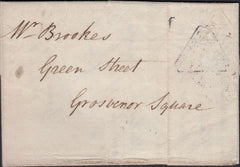 Mr Brookes
Green Street
Grosvenor Square